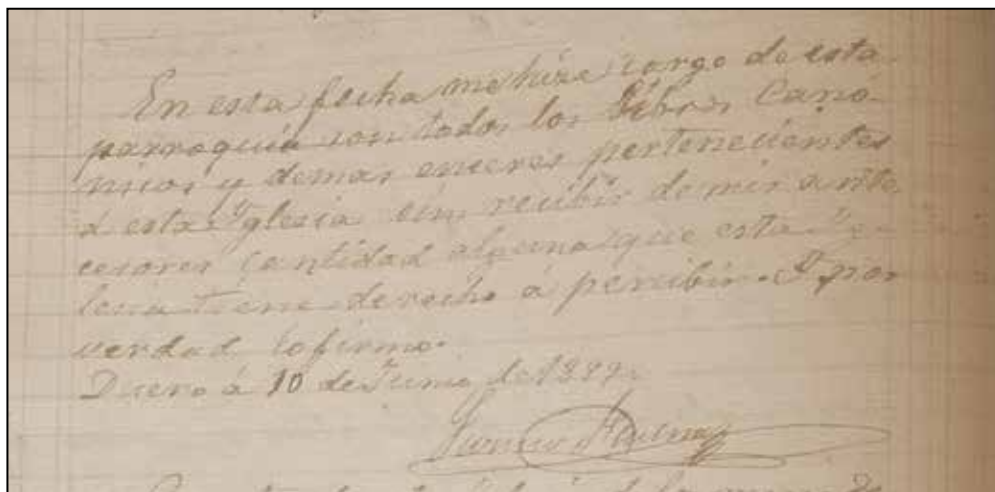 En esta fecha me hize cargo de esta
parroquia con todos los libros Canó-
nicos y demas enceres pertenecientes
á esta Yglesia sin recibir de mis ante-
cesores cantidad alguna que esta Yg-
lecia tiene derecho á percibir. Y por
verdad lo firmo.
Duero á 10 de Junio de